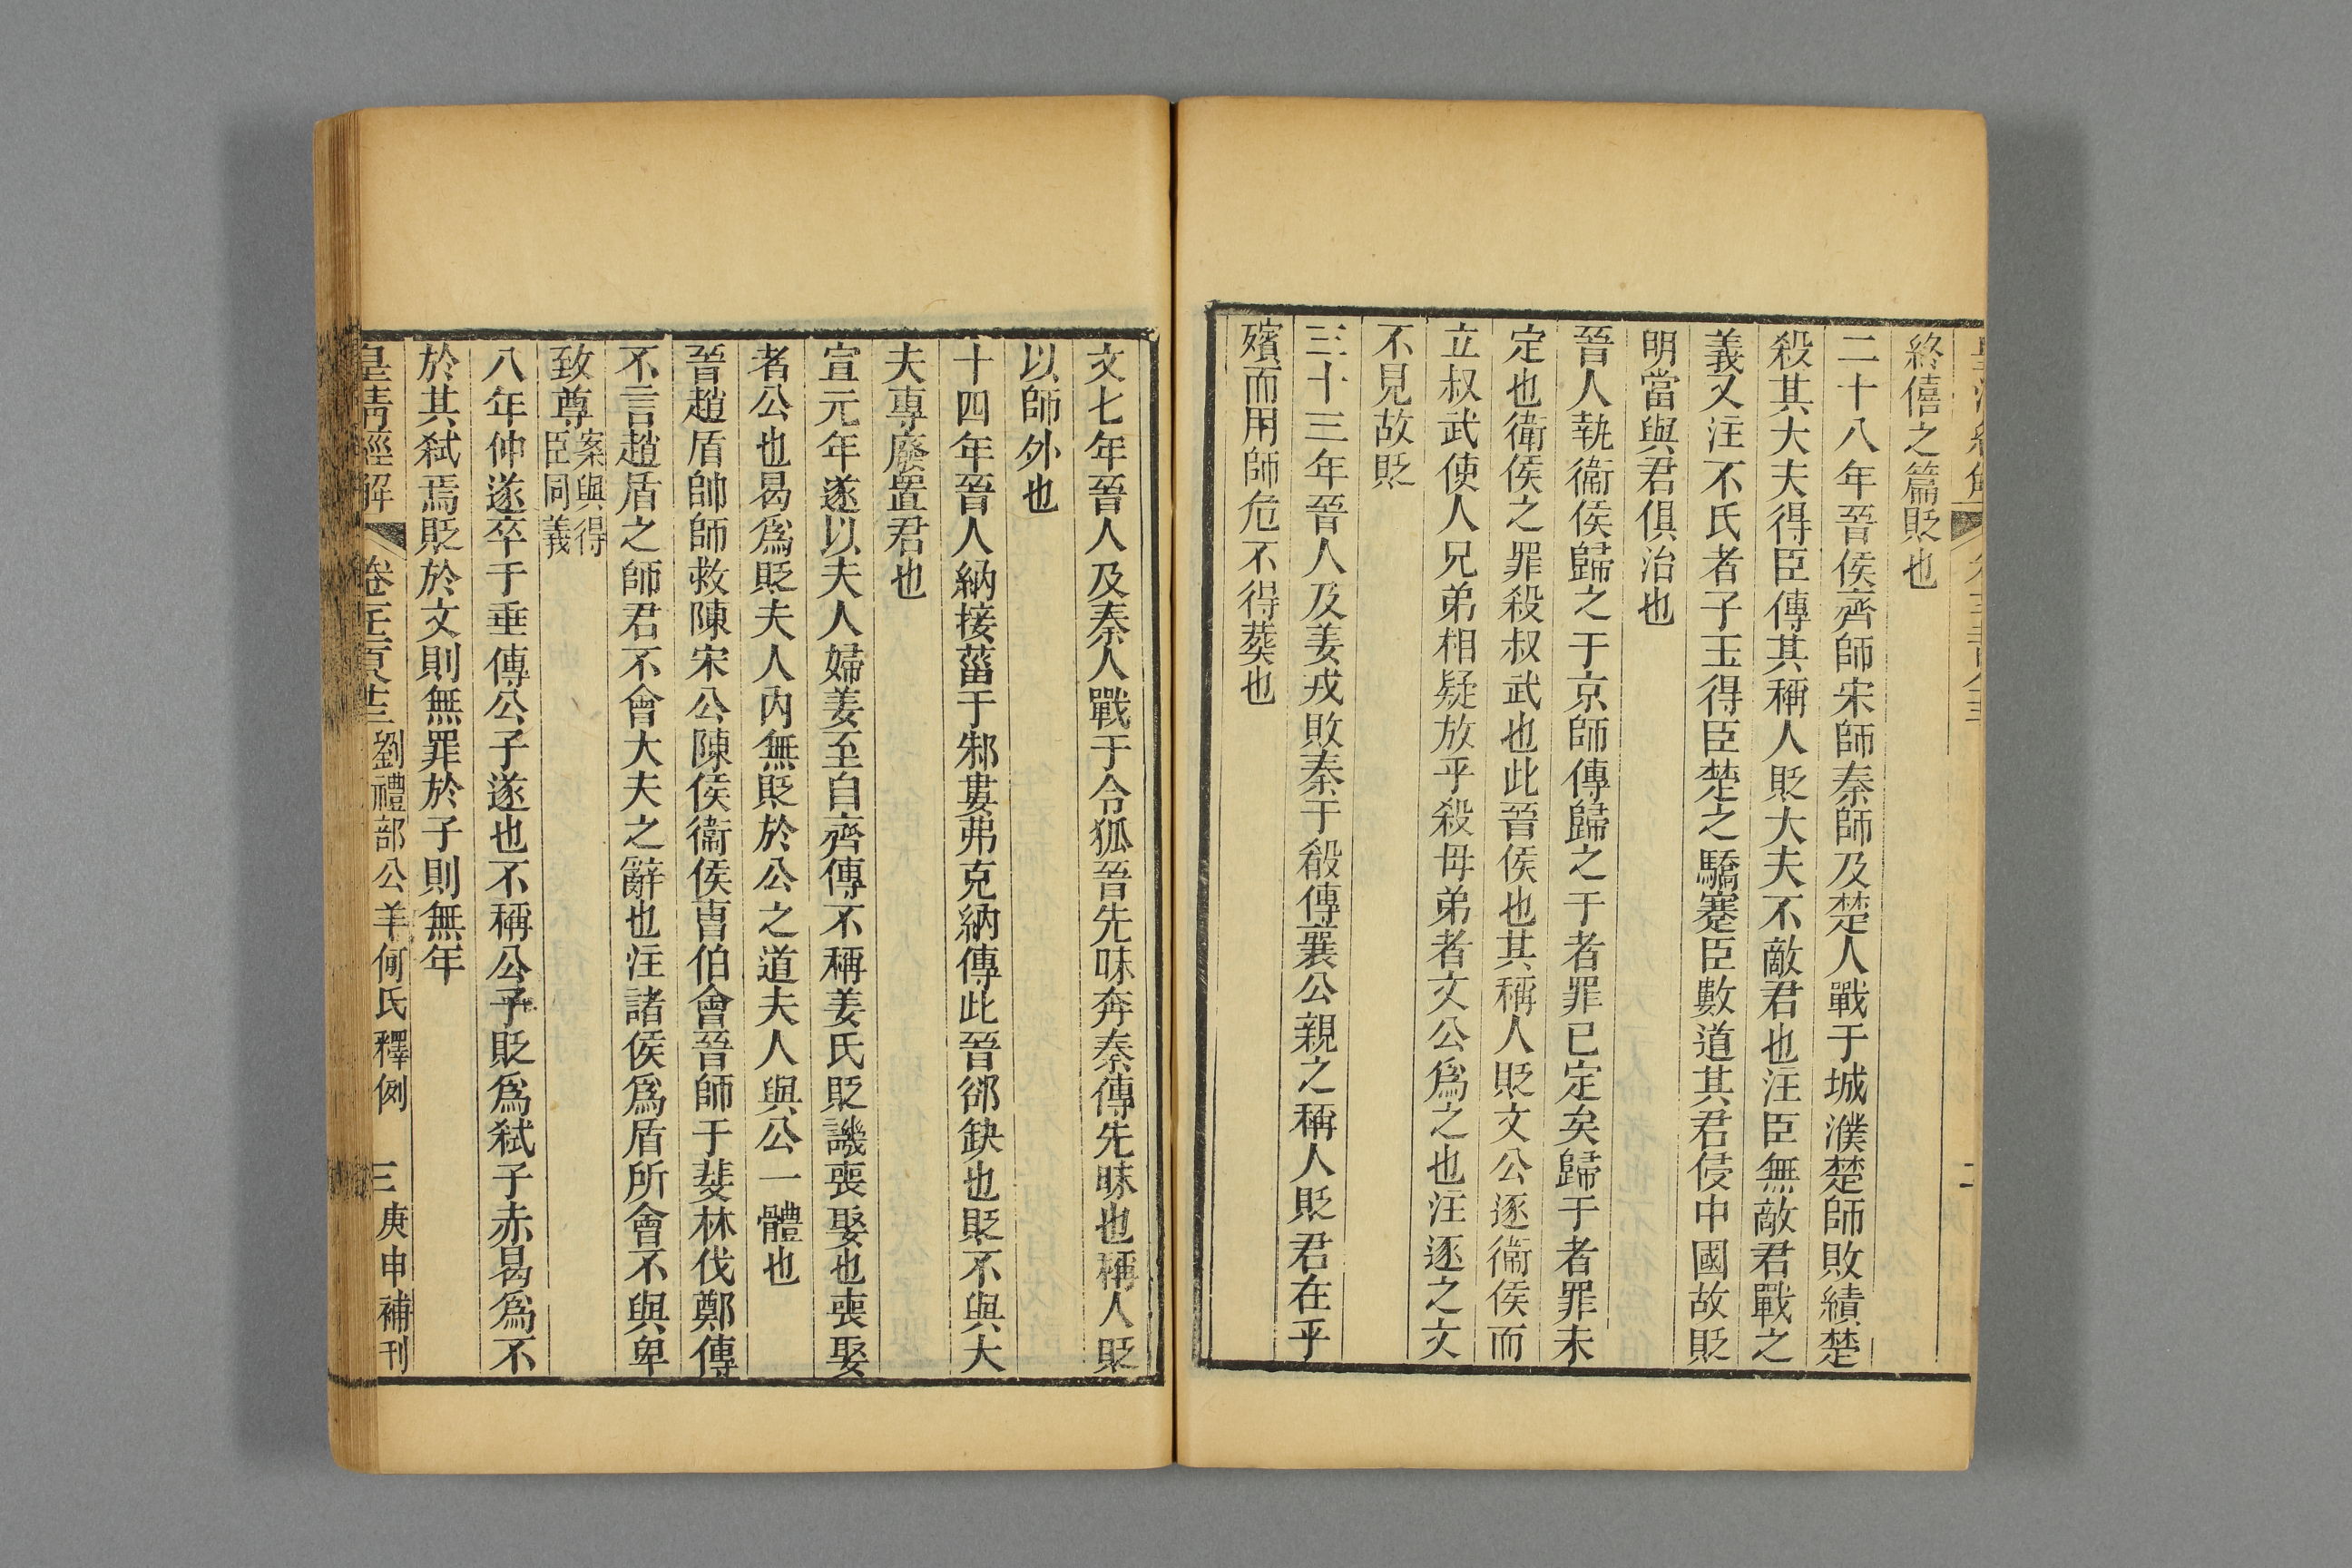 終僖之篇貶也
二十八年晉侯齊師宋師秦師及楚人戰于城濮楚師敗績楚
殺其大夫得臣傳其稱人貶大夫不敵君也注臣無敵君戰之
義又注不氏者子玉得臣楚之驕蹇臣數道其君侵中國故貶
明當與君俱治也
晉人執衞侯歸之于京師傳歸之于者罪已定矣歸于者罪未
定也衛侯之罪殺叔武也此晉侯也其稱人貶文公逐衞侯而
立叔武使人兄弟相疑放乎殺毋弟者文公爲之也注逐之文
不見故貶
三十三年晉人及姜戎敗秦于殽傳襄公親之稱人貶君在乎
殯而用師危不得葬也
文七年晉人及秦人戰于令狐晉先昧奔秦傳先昧也稱人貶
以師外也
十四年晉人納接菑于邾婁弗克納傳此晉郤缺也貶不與大
夫專廢置君也
宣元年遂以夫人婦姜至自齊傳不稱姜氏貶譏喪娶也喪娶
者公也曷爲貶夫人內無貶於公之道夫人與公一體也
晉趙盾帥師救陳宋公陳侯衞侯曹伯會晉師于斐林伐鄭傳
不言趙盾之師君不會大夫之辭也注諸侯爲盾所會不與卑
致尊案與得臣同義
八年仲遂卒于垂傳公子遂也不稱公子貶爲弒子赤曷爲不
於其弒焉貶於文則無罪於子則無年
皇清經解
劉禮部公羊何氏釋例 三 庚申補刊